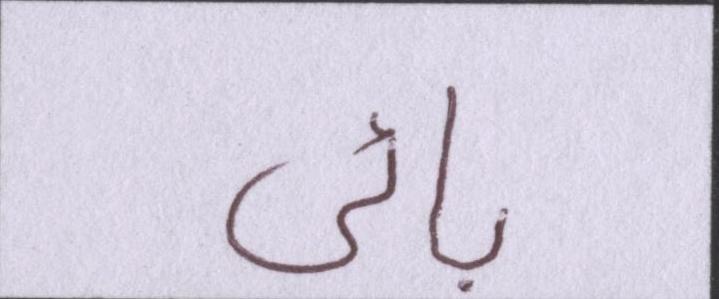 بائی